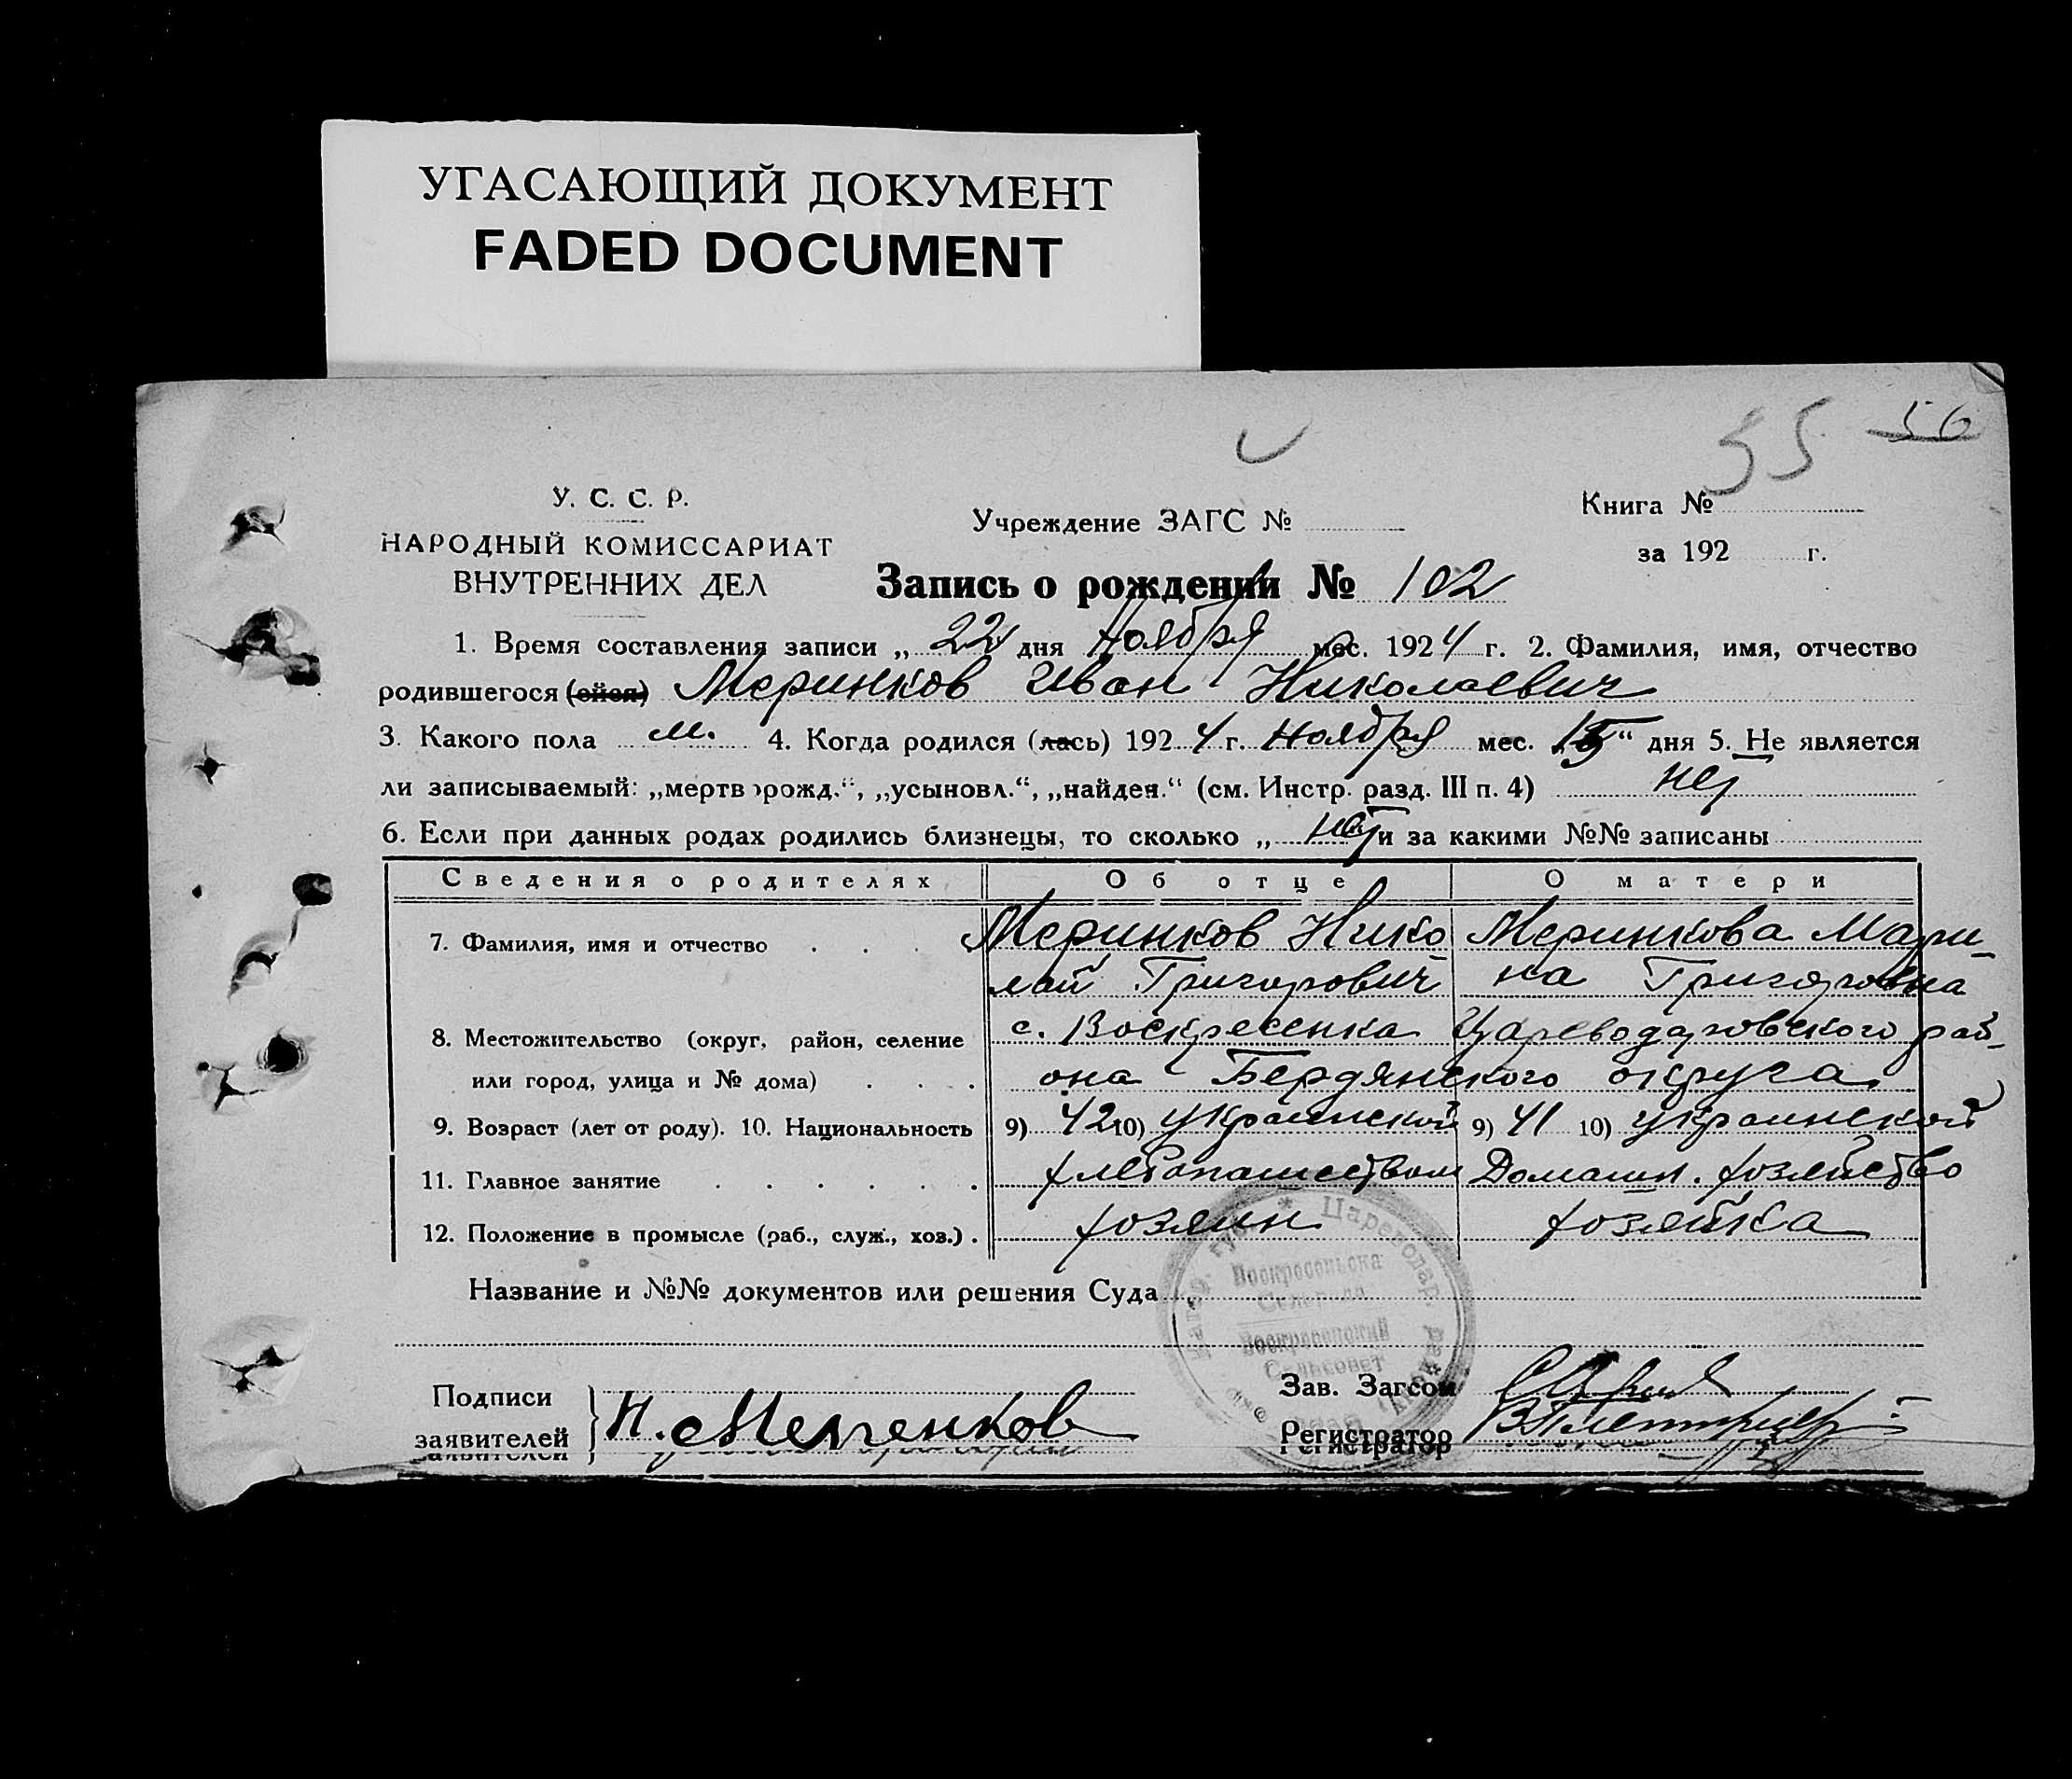 УГАСАЮЩИЙ ДОКУМЕНТ
FADED DOCUMENT
55 56
У. С. С. Р.
НАРОДНЫЙ КОМИССАРИАТ
ВНУТРЕННИХ ДЕЛ
Учреждение ЗАГС №
Книга №
за 192 г.
Запись о рождении № 102
1. Время составления записи „ 22 дня Ноября мес. 1924 г. 2. Фамилия, имя, отчество
родившегося (ейся) Меринков Иван Николаевич
3. Какого пола м. 4. Когда родился (лась) 1924 г. Ноября мес. „15“ дня 5. Не является
ли записываемый: „мертворожд.“, „усыновл.“, „найден.“ (см. Инстр. разд. III п. 4) нет
6. Если при данных родах родились близнецы, то сколько „ нет и за какими №№ записаны
Сведения о родителях Об отце О матери
7. Фамилия, имя и отчество . . . Меринков Нико Меринкова Мари-
лай Григорович на Григоровна
8. Местожительство (округ, район, селение с. Воскресенка Цареводаровского рай-
или город, улица и № дома) . . . она Бердянского округа
9. Возраст (лет от роду). 10. Национальность 9) 42 10) украинской 9) 41 10) украинской
11. Главное занятие . . . . . . хлебопашеством Домашн. хозяйство
12. Положение в промысле (раб., служ., хоз.) . хозяин хозяйка
Название и №№ документов или решения Суда
Цареводар.
Воскресенська
Сельрада
Воскресенский
Сельсовет
Подписи
заявителей
Н. Меренков
Зав. Загсом
Регистратор